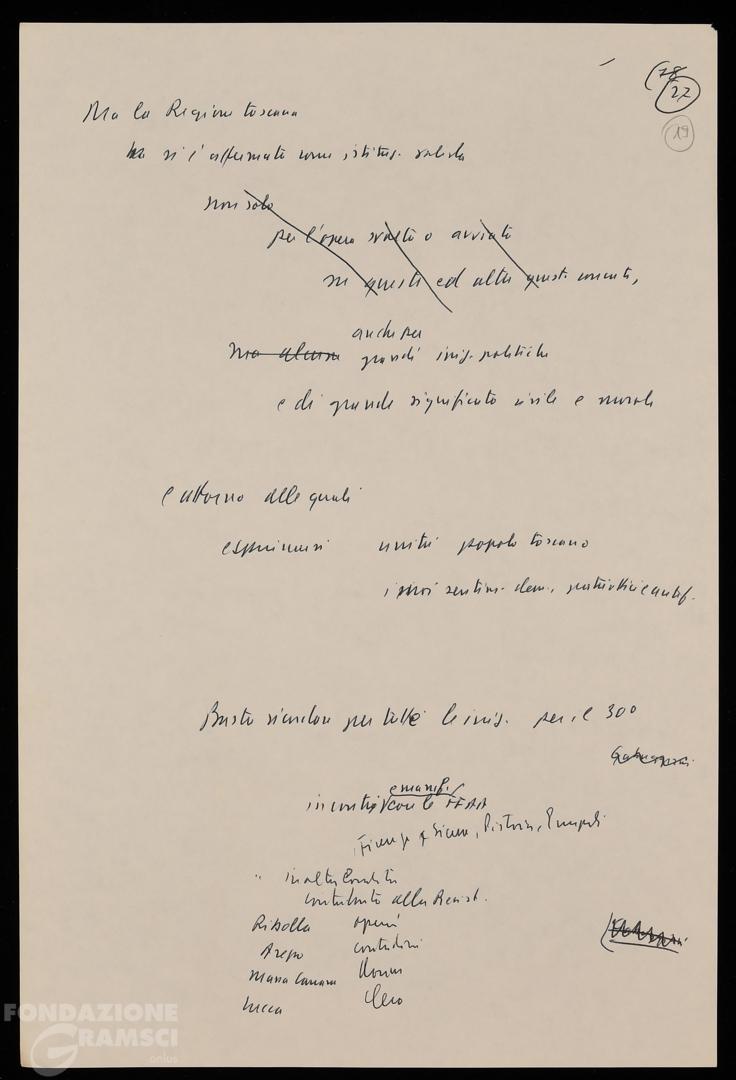 (78
27
19
Ma la Regione toscana
ha si è affermata come istituz. valida
non solo
per l'opera svolta o avviata
su questi ed altri quest. concreti,
anche per
ma alcune grandi iniz. politiche
e di grande significato civile e morale
e attorno alle quali
esprimersi unità popolo toscano
i suoi sentim. dem., patriottici e antif.
Basta ricordare per tutte le iniz. per il 30º
e manif.
incontri con le FFAA
Firenze, Siena, Pistoia, Empoli
" in altre località
contributo alla Resist.
Ribolla operai
Arezzo contadini
Massa Carrara donne
Lucca Clero
FONDAZIONE
GRAMSCI
onlus